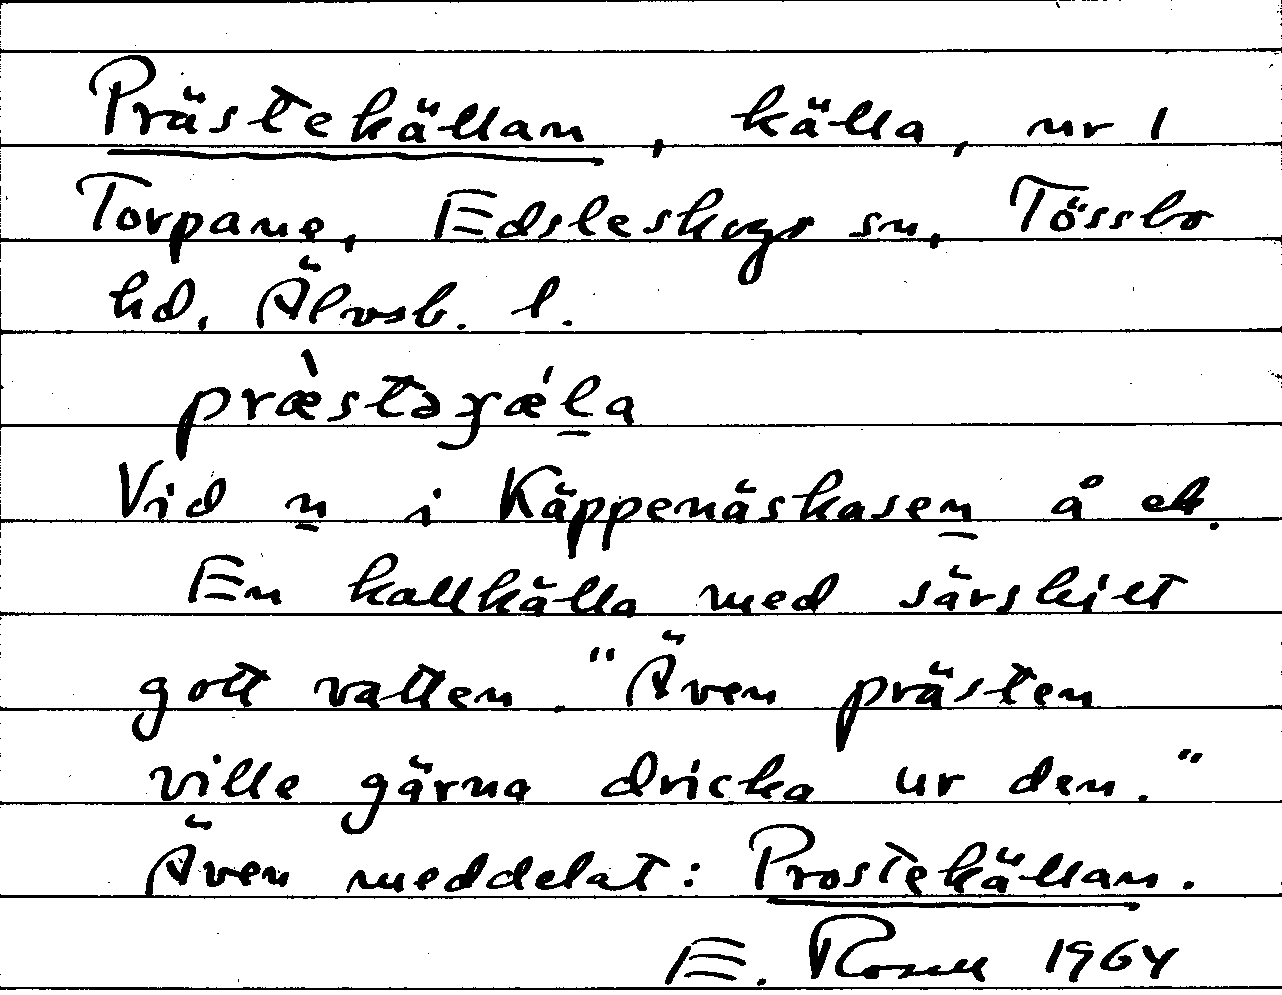 Prästekällan, källa, nr 1
Torpane, Edsleskogs sn, Tössbo
hd, Älvsb. l.
præ̀stəɣǽl̠a
Vid n̠ i Käppenäskasen̠ å ek.
En kallkälla med särskilt
gott vatten. "Även prästen
ville gärna dricka ur den."
Även meddelat: Prostekällan.
E. Rosell 1964